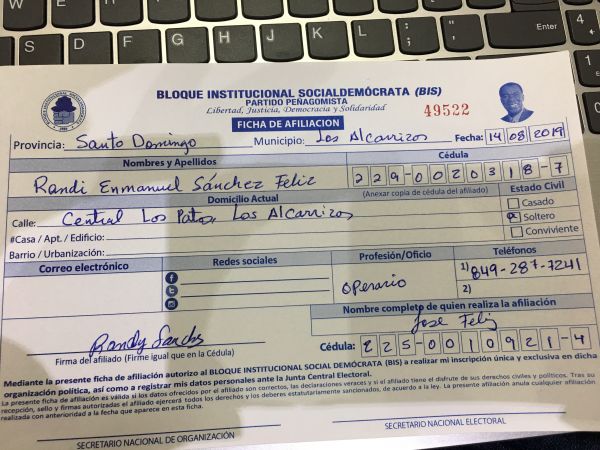 Enter
S D F G H J K L
BLOQUE INSTITUCIONAL SOCIALDEMÓCRATA (BIS)
PARTIDO PEÑAGOMISTA
Libertad, Justicia, Democracia y Solidaridad
49522
FICHA DE AFILIACION
Provincia: Santo Domingo Municipio: Los Alcarrizos Fecha: 14 08 2019
Nombres y Apellidos Cédula
Randi Enmanuel Sánchez Feliz 229-0020318-7
(Anexar copia de cédula del afiliado)
Domicilio Actual Estado Civil
Calle: Central Los Patos, Los Alcarrizos Casado
#Casa / Apt. / Edificio: Soltero
Barrio / Urbanización: Conviviente
Correo electrónico Redes sociales Profesión/Oficio Teléfonos
operario 1) 849-287-7241
2)
Nombre completo de quien realiza la afiliación
Jose Feliz
Cédula: 225-0010921-4
Firma del afiliado (Firme igual que en la Cédula)
Mediante la presente ficha de afiliación autorizo al BLOQUE INSTITUCIONAL SOCIAL DEMÓCRATA (BIS) a realizar mi inscripción única y exclusiva en dicha
organización política, así como a registrar mis datos personales ante la Junta Central Electoral.
La presente ficha de afiliación es válida si los datos ofrecidos por el afiliado son correctos, las declaraciones veraces y si el afiliado tiene el disfrute de sus derechos civiles y políticos. Tras su
recepción, sello y firmas autorizadas el afiliado ejercerá todos los derechos y los deberes estatutariamente sancionados, de acuerdo a la ley. La presente afiliación anula cualquier afiliación
realizada con anterioridad a la fecha que aparece en esta ficha.
SECRETARIO NACIONAL DE ORGANIZACIÓN SECRETARIO NACIONAL ELECTORAL